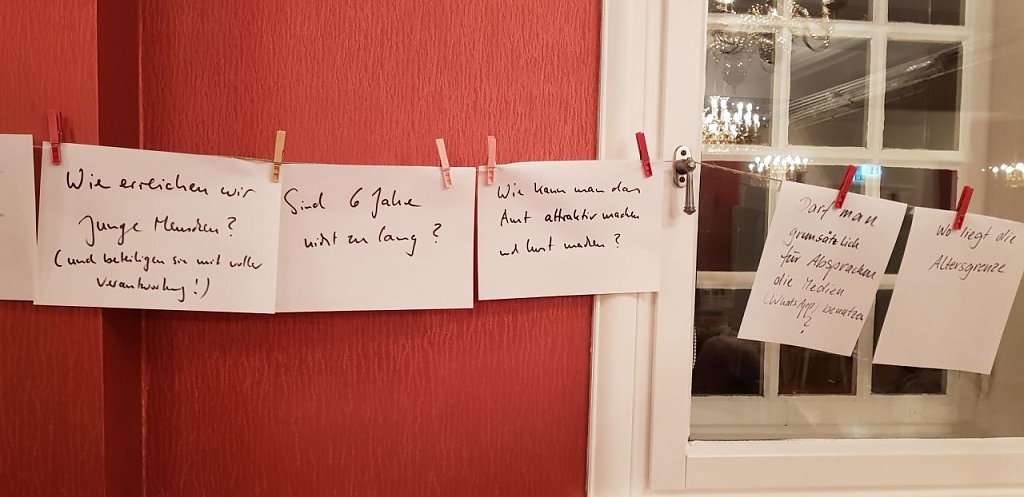 Wie erreichen wir
junge Menschen?
(und beteiligen sie mit voller
Verantwortung!)
Sind 6 Jahre
nicht zu lang?
Wie kann man das
Amt attraktiv machen
und Lust machen?
Darf man
grundsätzlich
für Absprachen
die Medien
(WhatsApp) benutzen
?
Wo liegt die
Altersgrenze